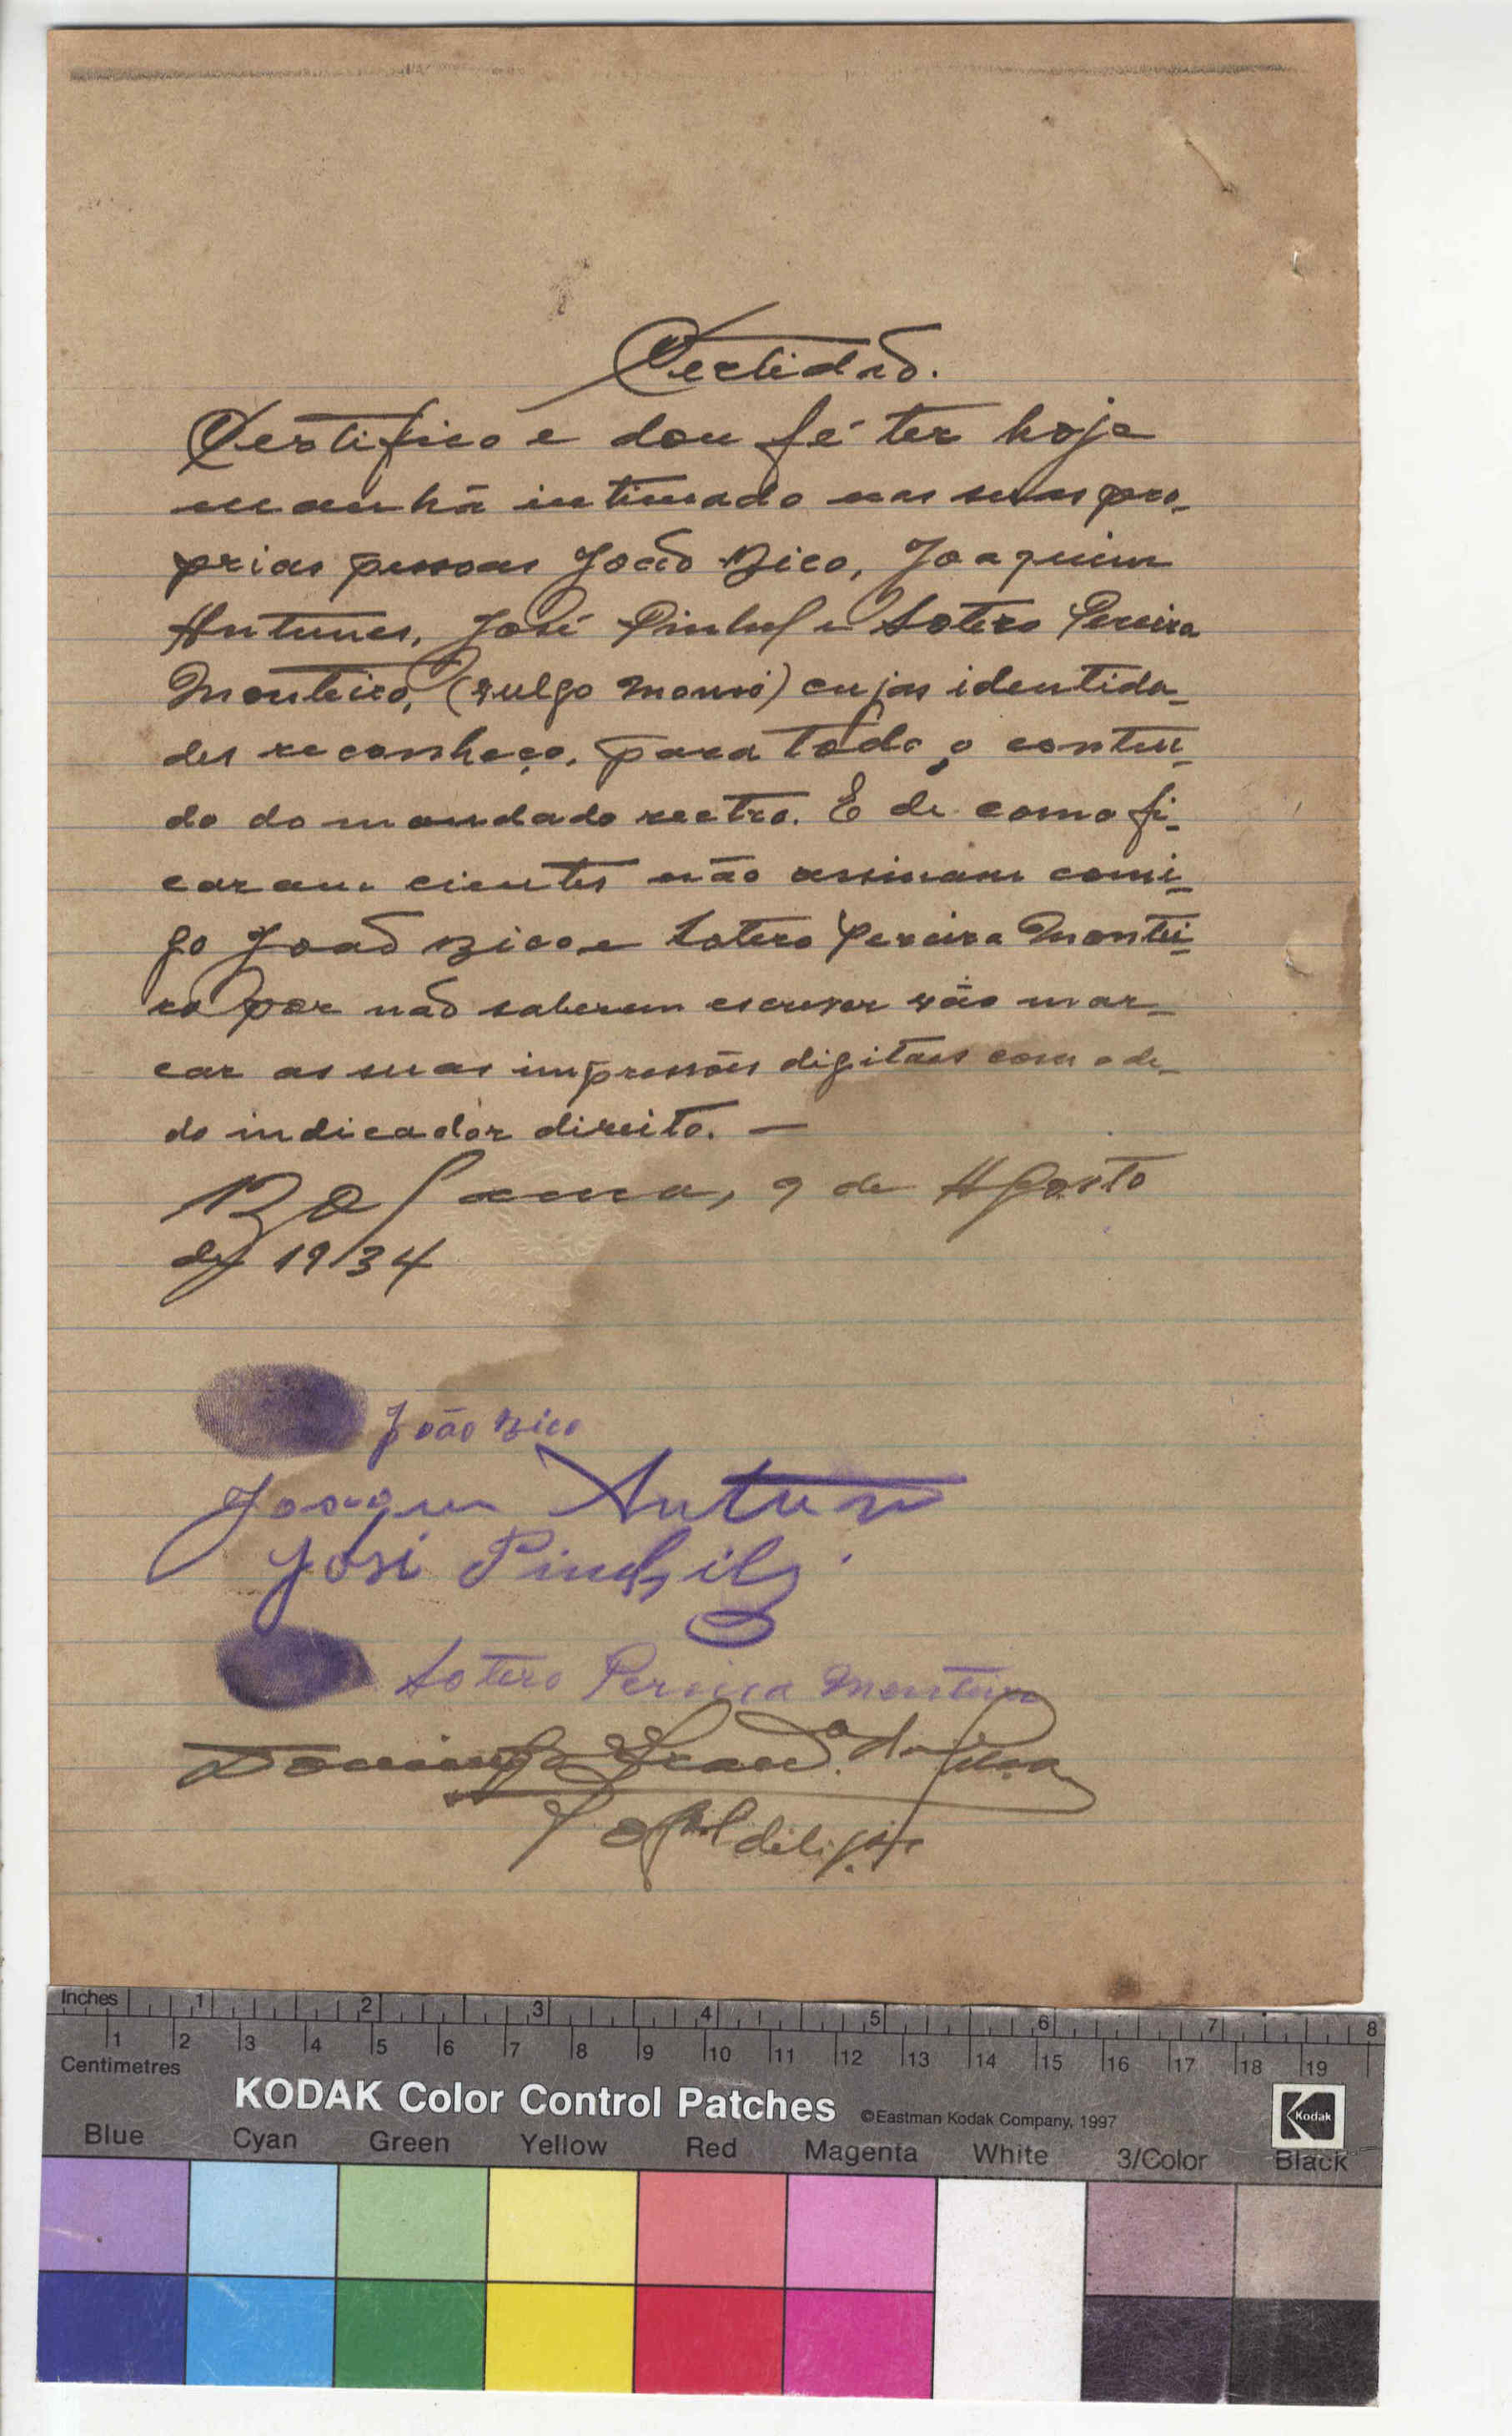 Certidão.
Certifico e dou fé ter hoje
manhã intimado nas suas pro-
prias pessoas João Bico, Joaquim
Antunes, José Pinhel e Sotero Pereira
Monteiro, (vulgo ) cujas identida-
des reconheço, para todo o conteu-
do do mandado rectro. E de como fi-
caram cientes não assinam comi-
go João Bico e Sotero Pereira Montei-
ro por não saberem escrever vão mar-
car as suas impressões digitaes com o de-
do indicador direito. —
Bolama, 9 de Agosto
de 1934
João Bico
Joaqum Antun
José Pinhil
Sotero Pereira Monteiro
da Silva
Inches 1 2 3 4 5 6 7 8
Centimetres 1 2 3 4 5 6 7 8 9 10 11 12 13 14 15 16 17 18 19
KODAK Color Control Patches ©Eastman Kodak Company, 1997 Kodak
Blue Cyan Green Yellow Red Magenta White 3/Color Black